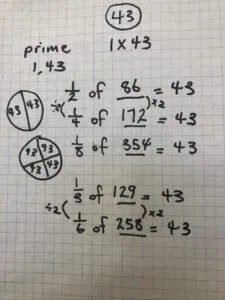 43
prime 1 x 43
1, 43
43 43
1/2 of 86 = 43
÷2 x2
1/4 of 172 = 43
43 43
43 43
1/8 of 354 = 43
1/3 of 129 = 43
÷2 x2
1/6 of 258 = 43